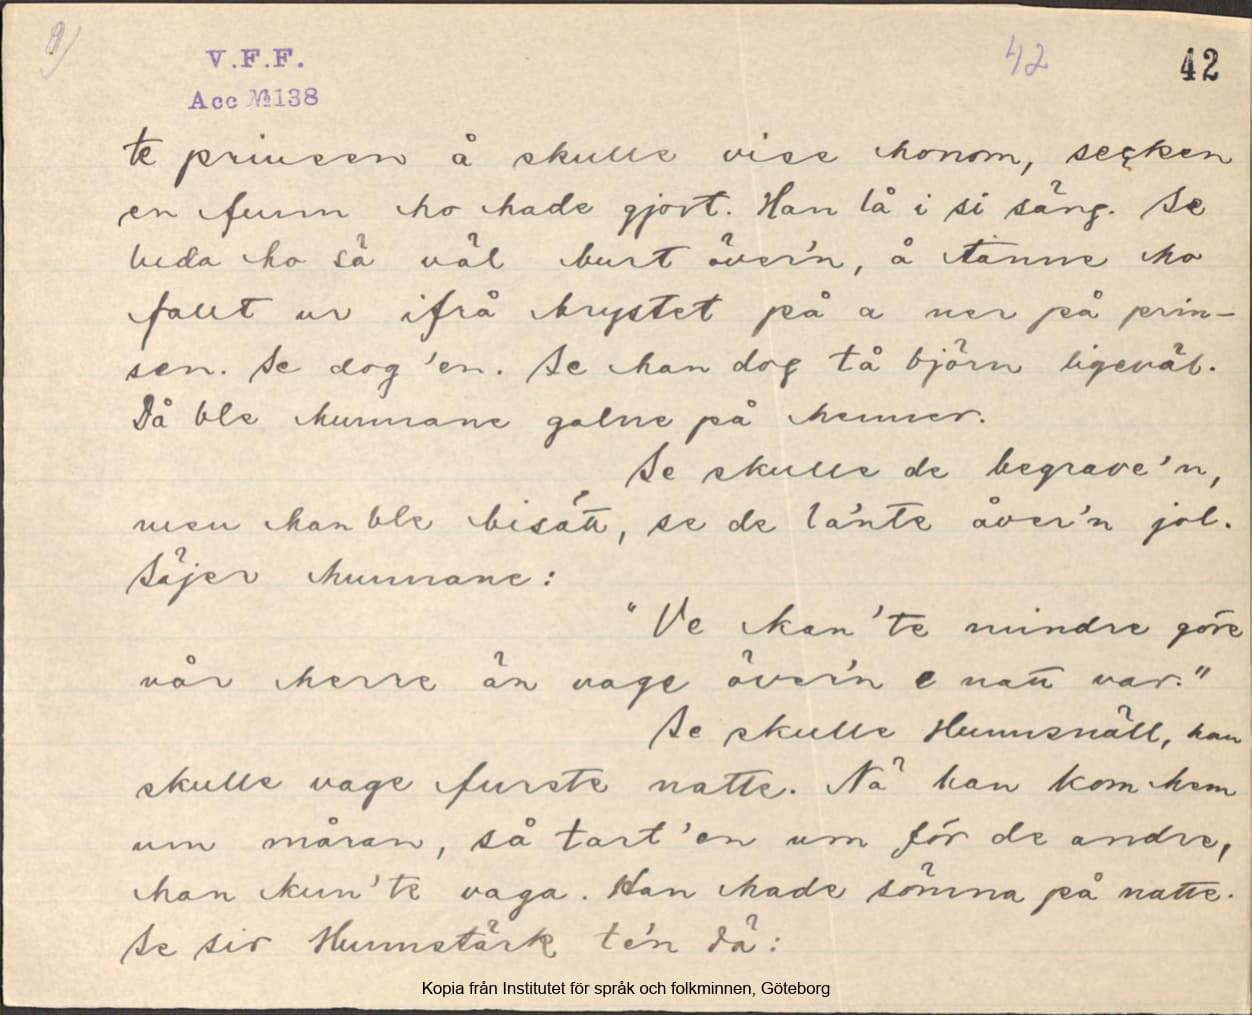 9)
V.F.F.
Acc № 138
42
42
te prinsen å skulle vise honom, secken
en funn ho hade gjort. Han lå i si säng. Se
luda ho så väl burt över'n, å tänne ho
fallt ur ifrå brystet på a ner på prin-
sen. Se dog 'en. Se han dog tå björn ligeväl.
Då ble hunnane galne på henner.
Se skulle de begrave'n,
men han ble bisätt, se de la'nte åver'n jol.
Säjer hunnane:
"Ve kan 'te mindre göre
vår herre än vage över'n e natt var."
Se skulle Hunnsnäll, han
skulle vage furste natte. Nä han kom hem
um måran, så tart 'en um för de andre,
han kun'te vaga. Han hade sömna på natte.
Se sir Hunnstärk te'n då:
Kopia från Institutet för språk och folkminnen, Göteborg